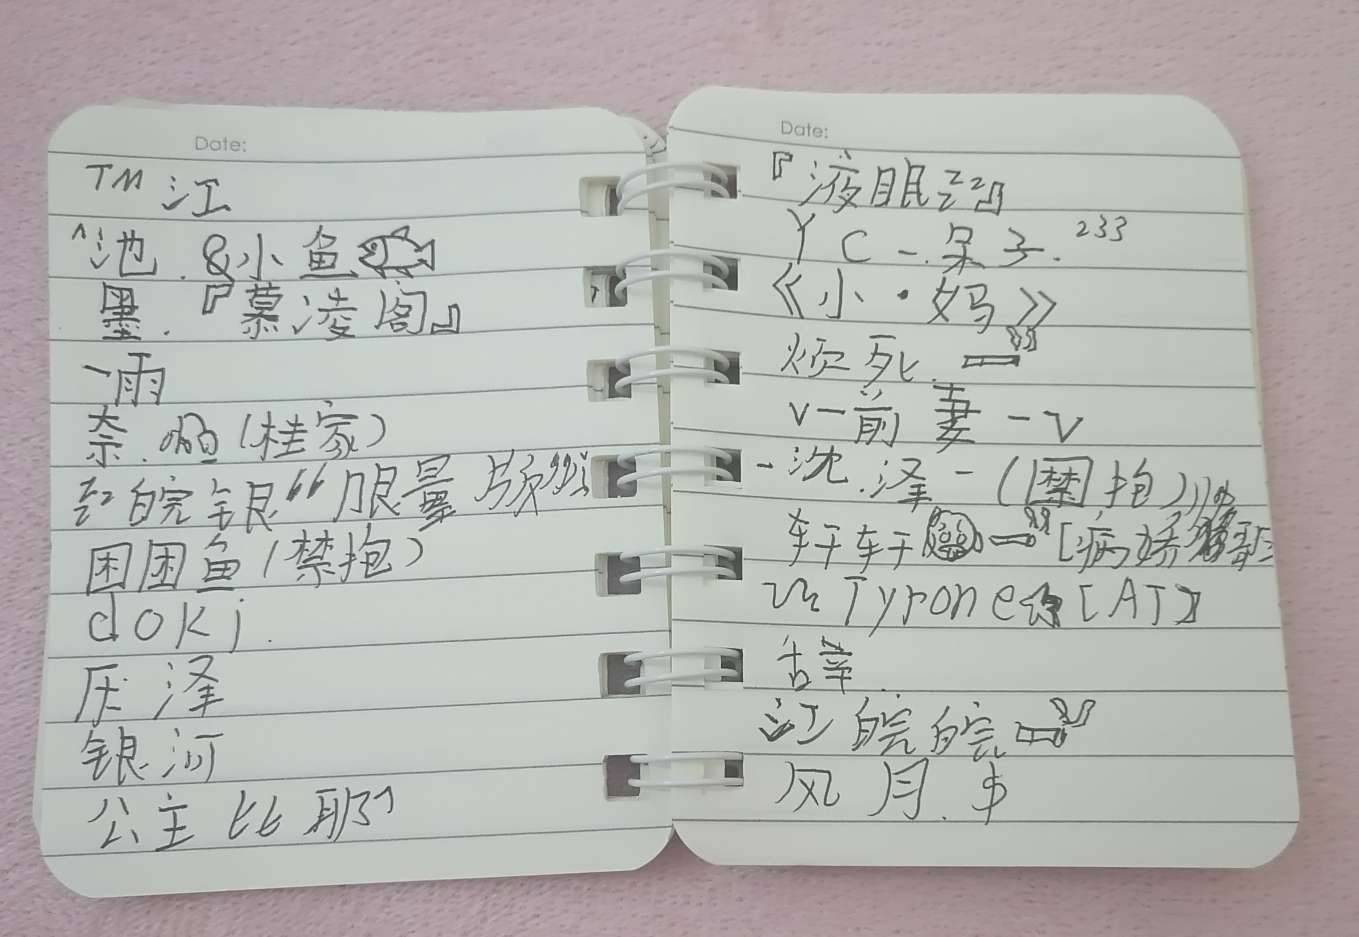 Date:
TM 江
^池.&小鱼
墨.『慕凌阁』
一雨
奈.啊(桂家)
皖银“限量
困困鱼(禁抱)
doki.
厌泽
银河
公主比耶
Date:
『液眠zzz』
YC-呆子.233
《小·妈》
烦死.
v-前妻-v
-沈.泽-(禁抱)
轩轩[病娇
Tyrone[AT]
辞
江皖皖
风月.$